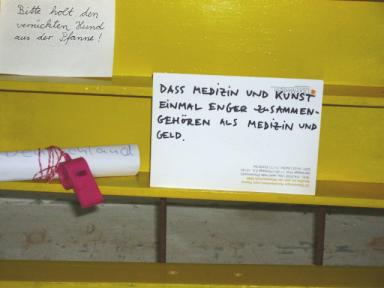 Bitte holt den
verrückten Hund
aus der Pfanne!
DASS MEDIZIN UND KUNST
EINMAL ENGER ZUSAMMEN-
GEHÖREN ALS MEDIZIN UND
GELD.